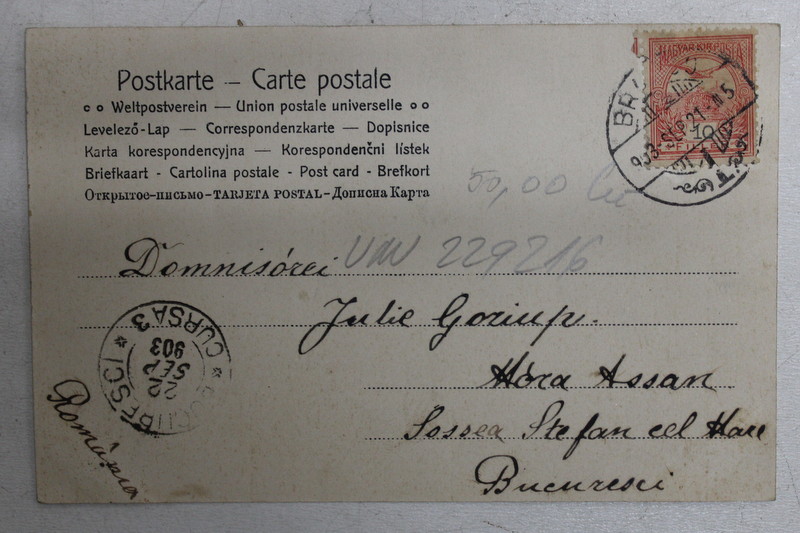 Postkarte — Carte postale
Weltpostverein — Union postale universelle
Levelező-Lap — Correspondenzkarte — Dopisnice
Karta korespondencyjna — Korespondenčni lístek
Briefkaart - Cartolina postale - Post card - Brefkort
Открытое-письмо-TARJETA POSTAL-Дописна Карта
MAGYAR KIR. POSTA
10
903 SEP 21
50,00
229216
Domnisórei
Julie Goriup.
Móra Assan
Sossea Stefan cel Mare
Bucuresci
România
BUCURESCI
CURSA 3
22 SEP 903